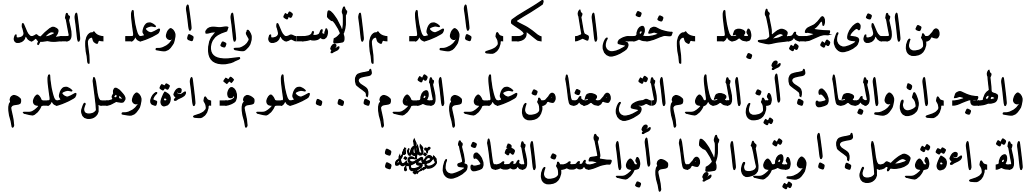 من الذى يحيط بعلم خفى المكر ! وعلم الإستدراج ! وعلم الصد
والهجران والبعاد ؟ أين العلوم التى معنا من علوم القوم ؟ . . علوم قراءة، وهل علوم
القراءة توصل ؟ ! ويقول الإمام أبو الحسن الشاذلى رضي الله عنه :